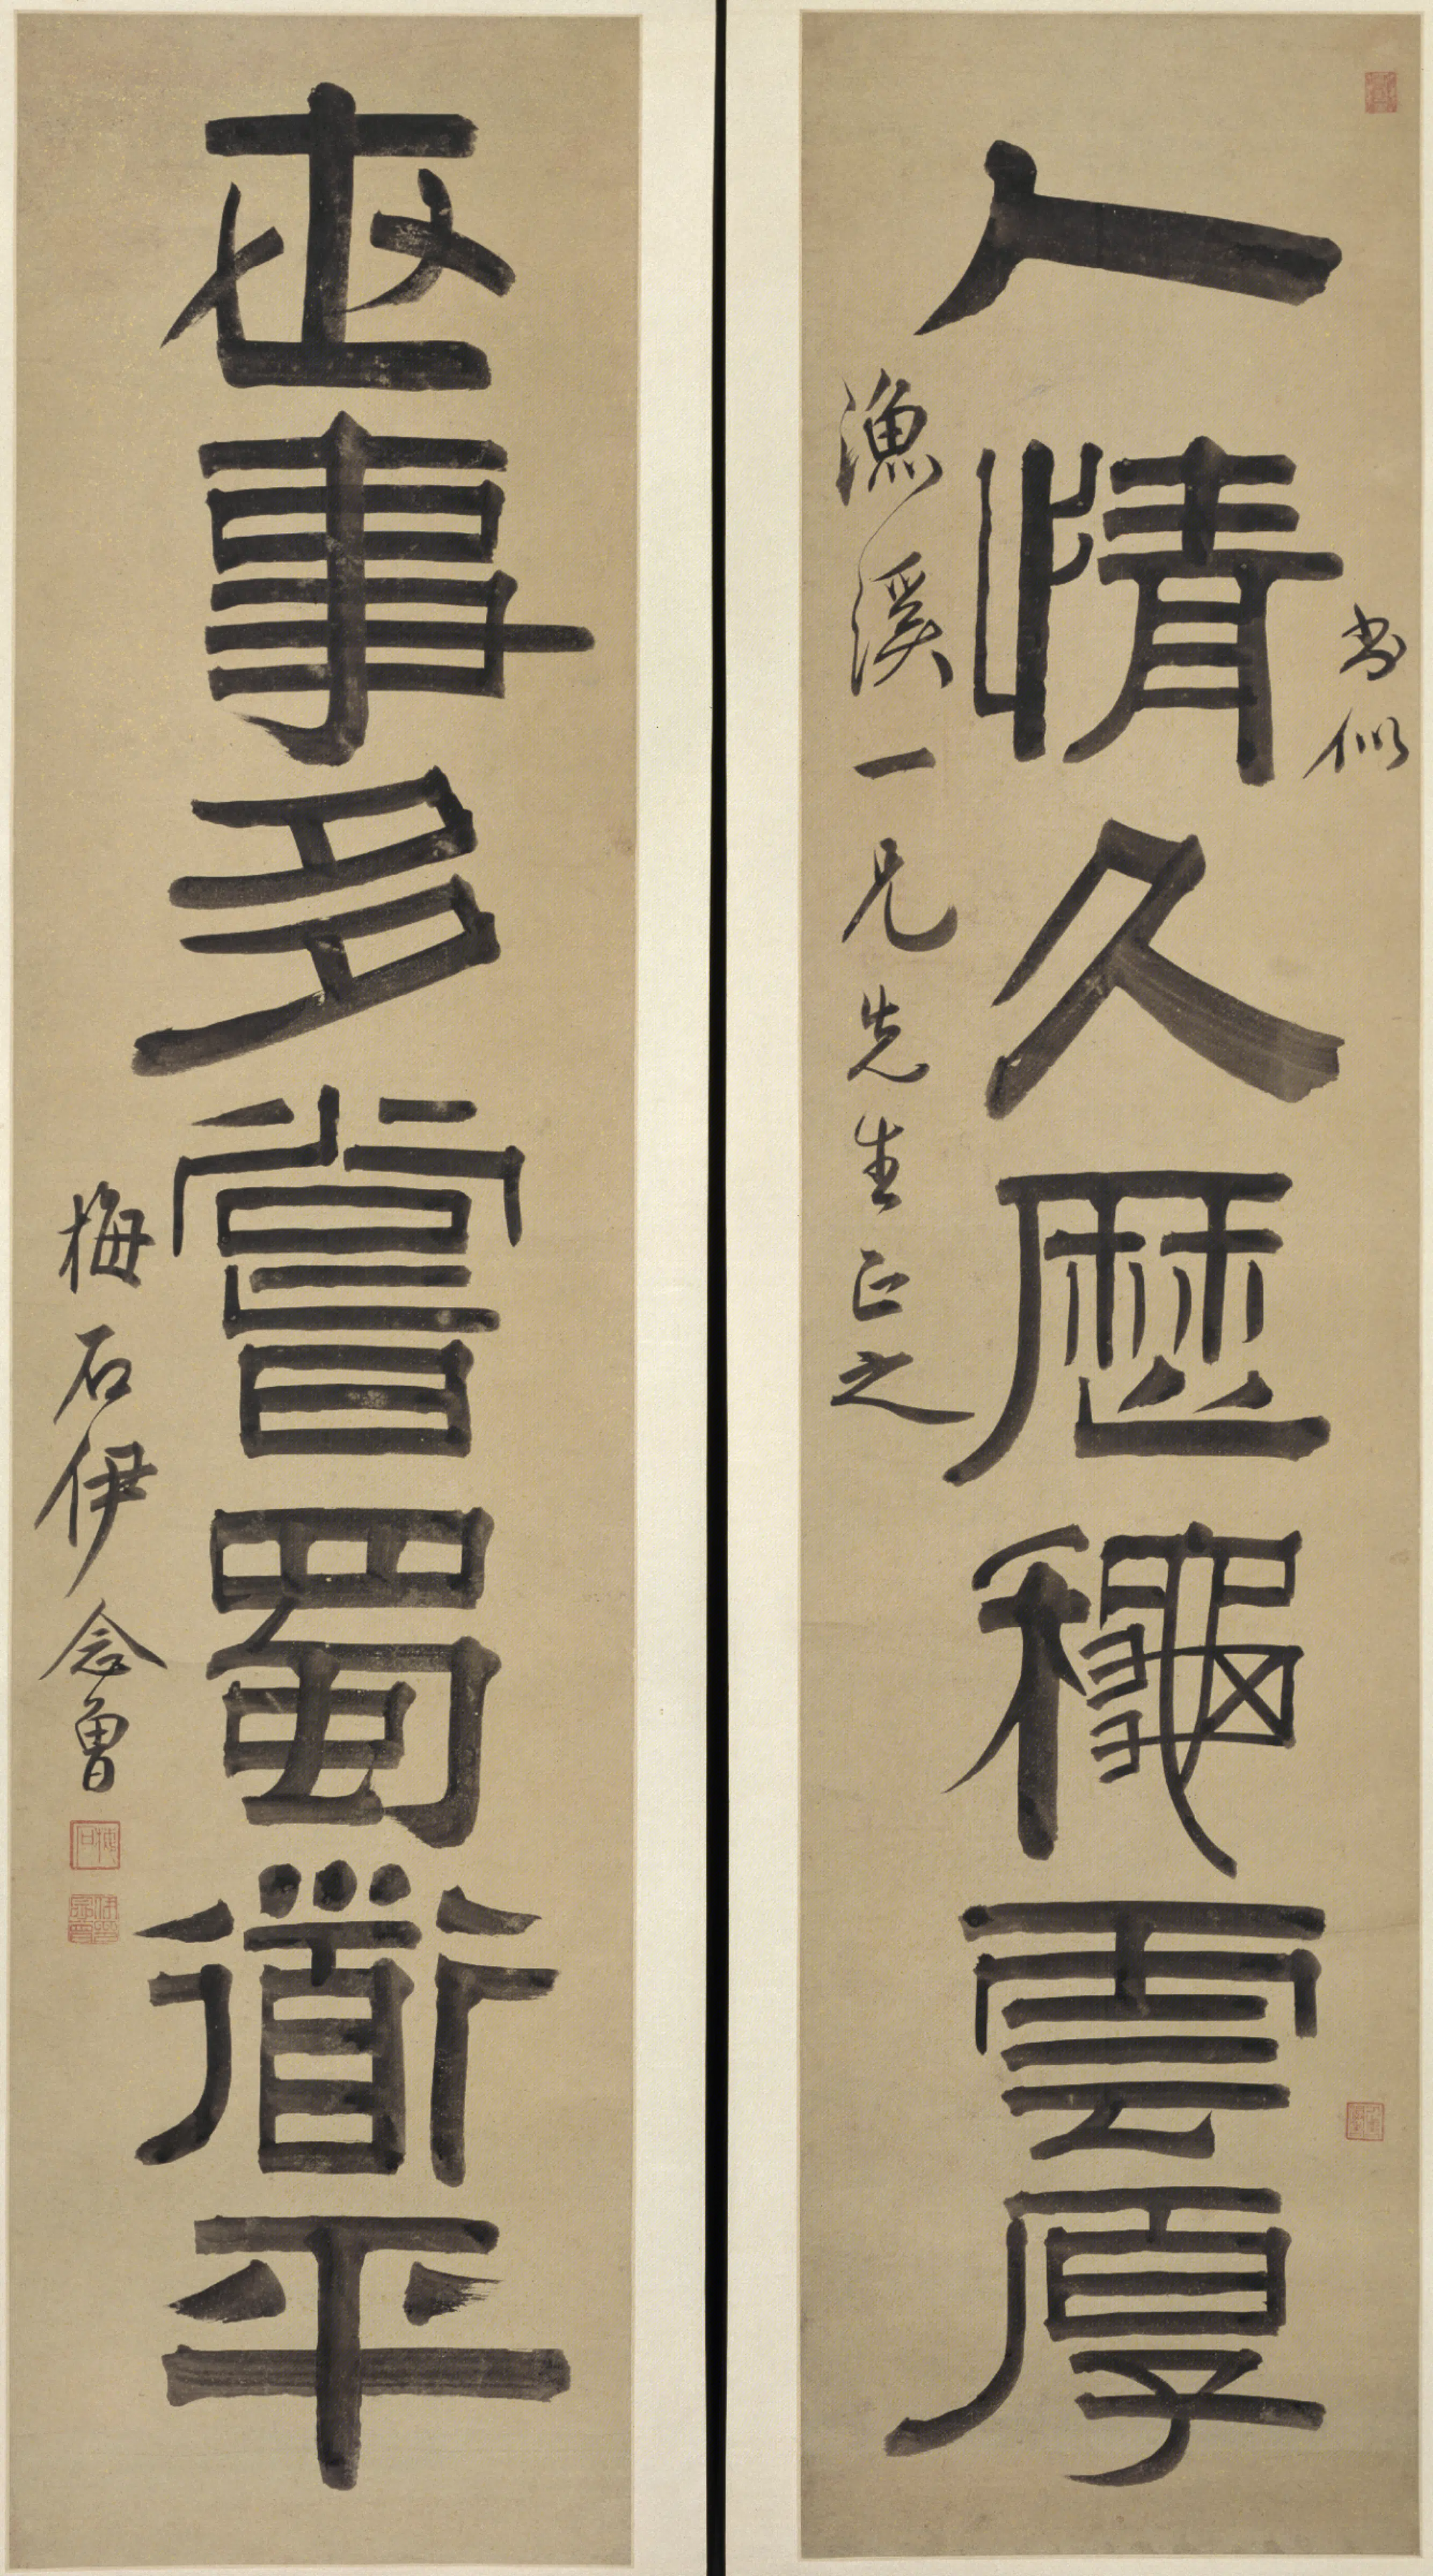 書似
人情久歷龝雲厚
漁溪一兄先生正之
世事多嘗蜀道平
梅石伊念曾
梅石